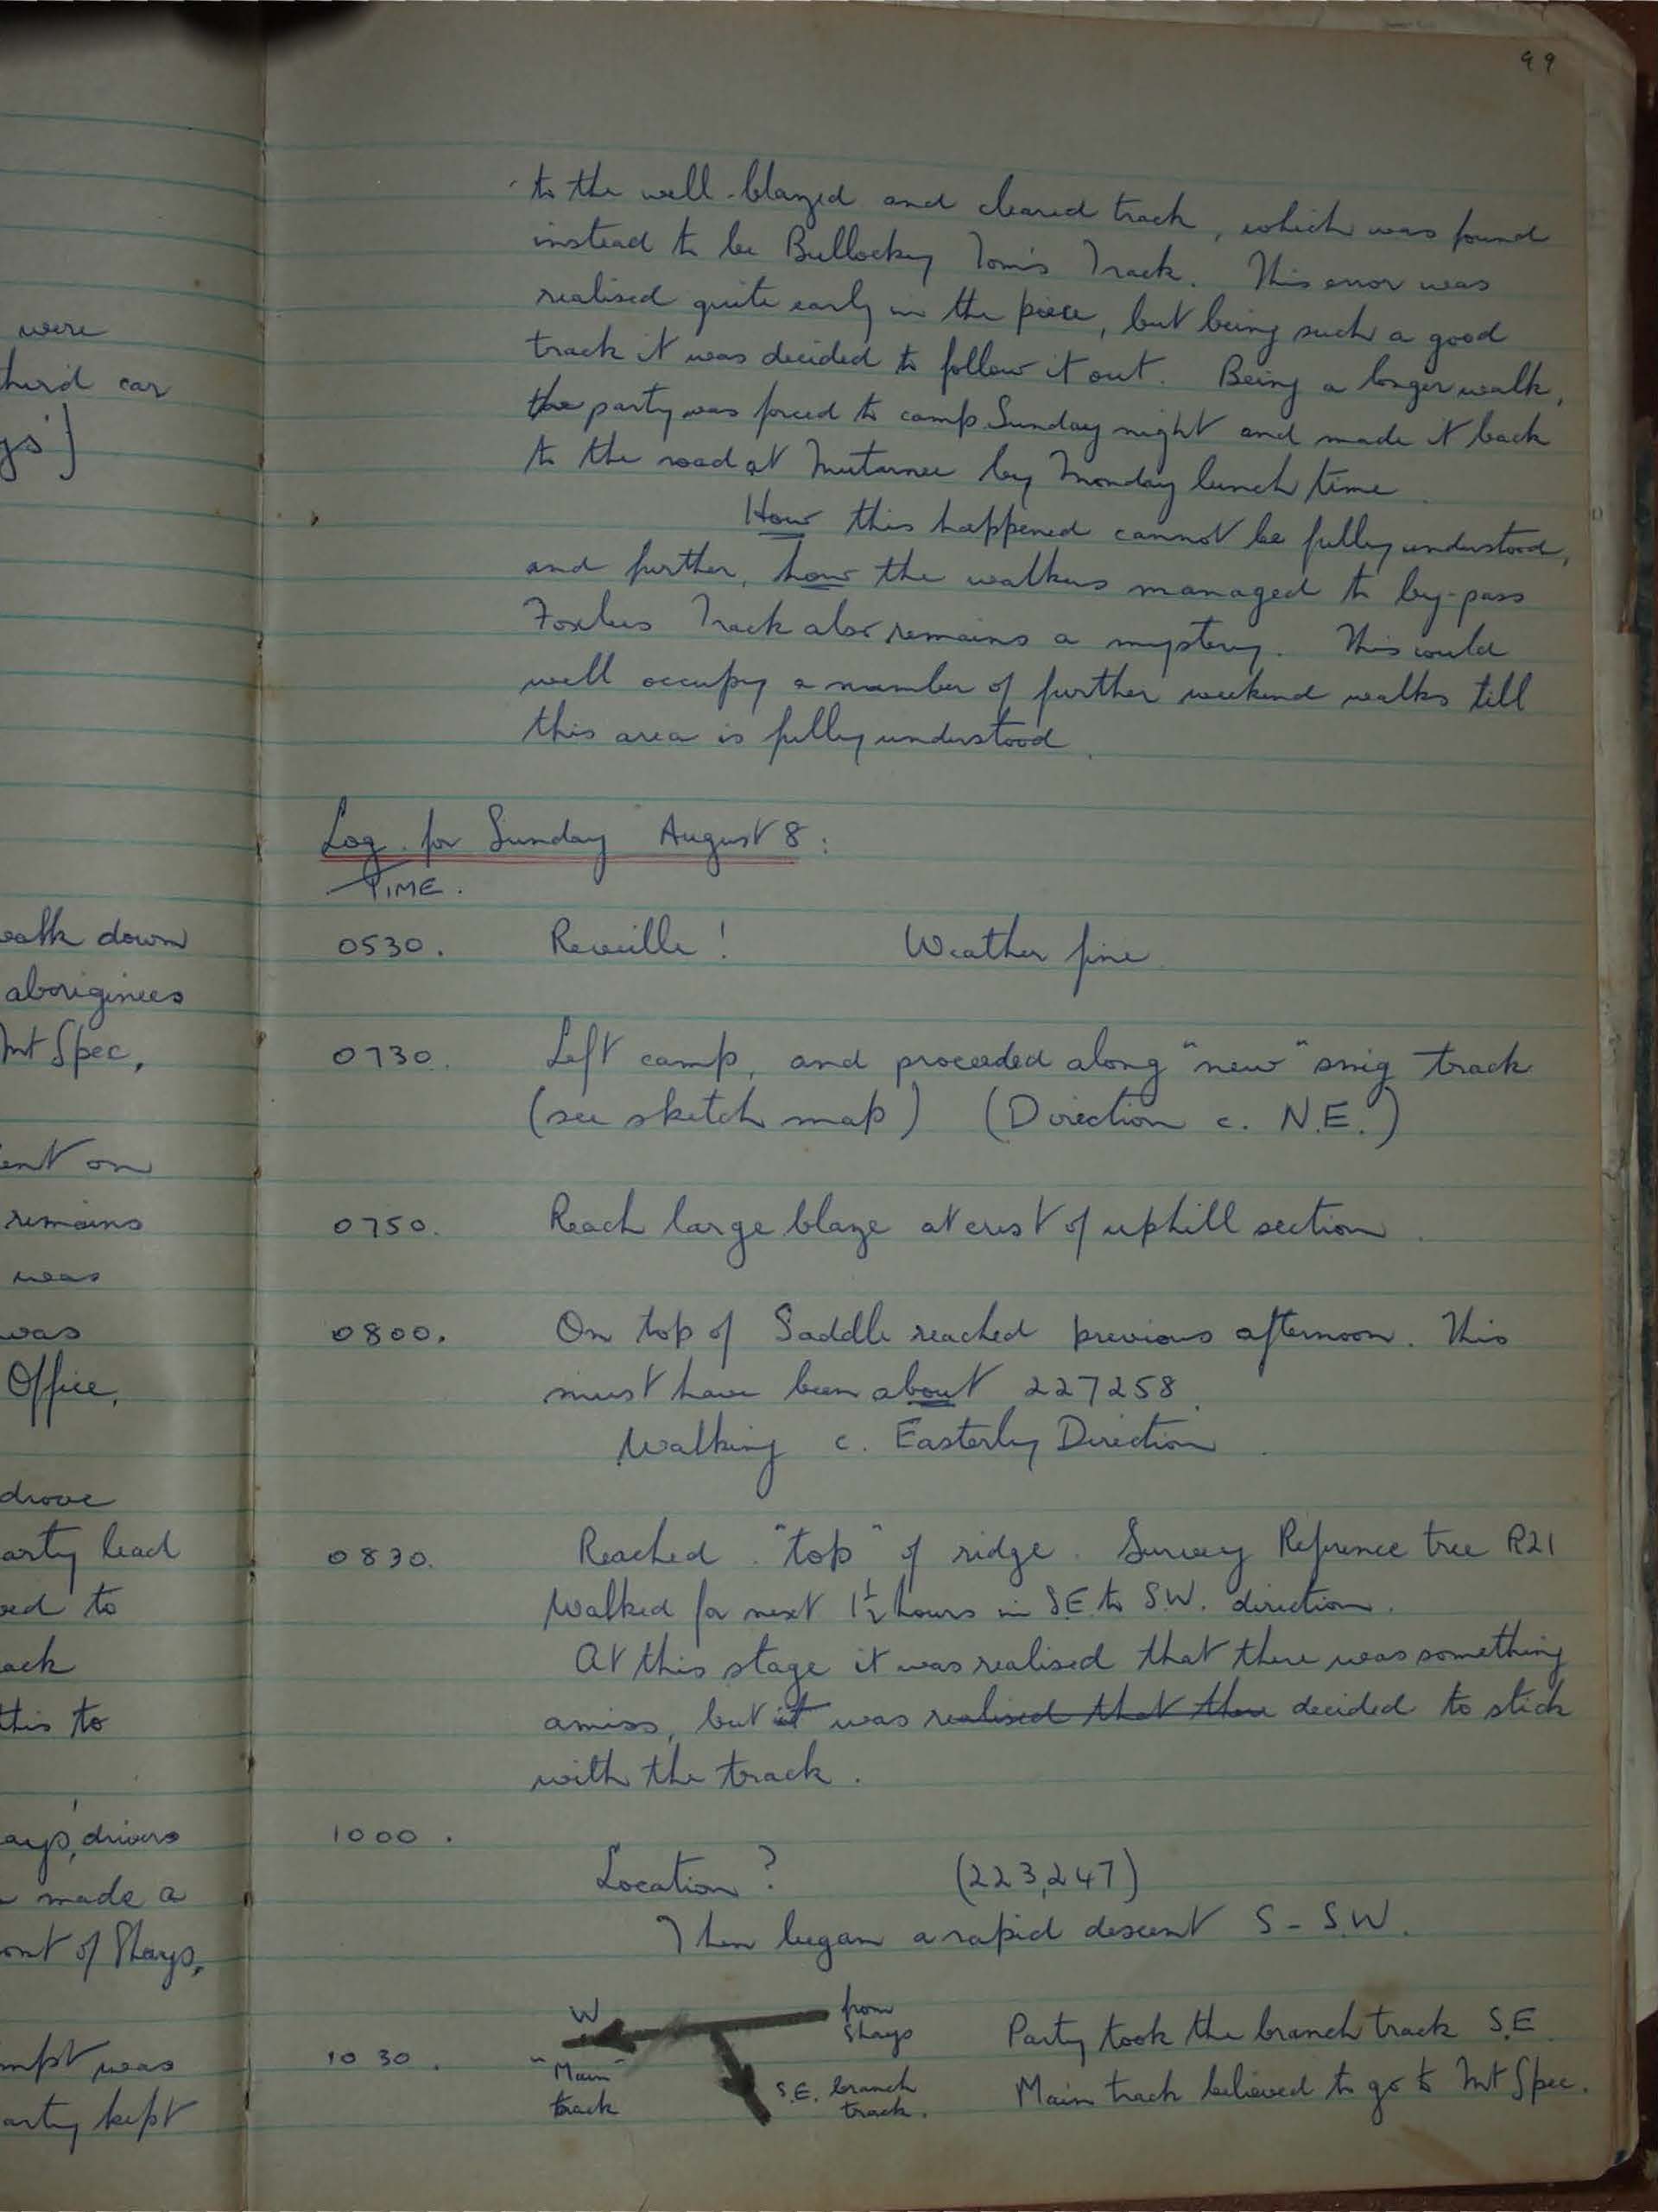 were
hird car
ys']
walk down
aborigines
Mt Spec,
ent on
remains
was
was
Office,
drove
arty lead
ed to
ack
this to
ays, drivers
made a
ont of Shays,
mpt was
arty kept
99
to the well-blazed and cleared track, which was found
instead to be Bullocky Tom's Track. This error was
realised quite early in the piece, but being such a good
track it was decided to follow it out. Being a longer walk,
the party was forced to camp Sunday night and made it back
to the road at Mutarnee by Monday lunch time.
How this happened cannot be fully understood,
and further, how the walkers managed to by-pass
Foxlees Track also remains a mystery. This could
well occupy a number of further weekend walks till
this area is fully understood.
Log for Sunday August 8:
TIME.
0530. Reveille! Weather fine.
0730. Left camp, and proceeded along "new" snig track
(see sketch map) (Direction c. N.E.)
0750. Reach large blaze at crest of uphill section.
0800. On top of Saddle reached previous afternoon. This
must have been about 227258.
Walking c. Easterly Direction.
0830. Reached "top" of ridge. Survey Reference tree R21
Walked for next 1½ hours in S.E to S.W. direction.
At this stage it was realised that there was something
amiss, but it was realised that there decided to stick
with the track.
1000.
Location? (223,247)
Then began a rapid descent S - S.W.
W from Shays Party took the branch track S.E.
1030. "Main" track S.E. branch track. Main track believed to go to Mt Spec.